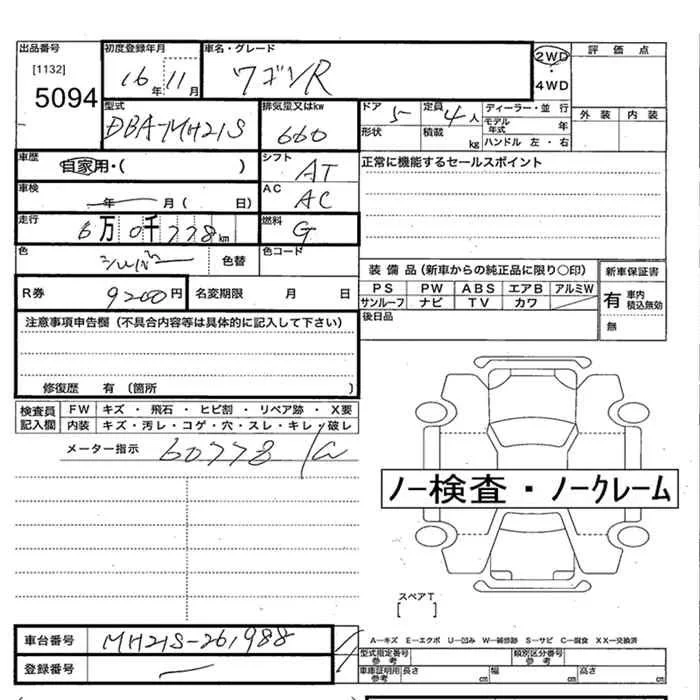 出品番号 初度登録年月 車名・グレード 2WD・4WD 評価点
[1132] 5094 16年 11月 ワゴンR
外装 内装
型式 排気量又はkw ドア 5 定員 4人 ディーラー・並行
DBA-MH21S 660 形状 積載 kg モデル年式 年
ハンドル 左・右
車歴 自家用・( ) シフト AT 正常に機能するセールスポイント
車検 年 月( 日) AC AC
走行 6万0千778km 燃料 G
色 シルバー 色替 色コード
装備品(新車からの純正品に限り○印) 新車保証書
R券 9200円 名変期限 月 日 PS PW ABS エアB アルミW 有 車内積込無効
サンルーフ ナビ TV カワ 無
注意事項申告欄(不具合内容等は具体的に記入して下さい) 後日品
修復歴 有(箇所 )
検査員記入欄 FW キズ・飛石・ヒビ割・リペア跡・X要
内装 キズ・汚レ・コゲ・穴・スレ・キレ・破レ
メーター指示 60778
ノー検査・ノークレーム
スペアT
[ ]
車台番号 MH21S-261988
A-キズ E-エクボ U-凹み W-補修跡 S-サビ C-腐食 XX-交換済
登録番号 型式指定番号 参考 類別区分番号 参考
車庫証明用 参考 長さ cm 幅 cm 高さ cm